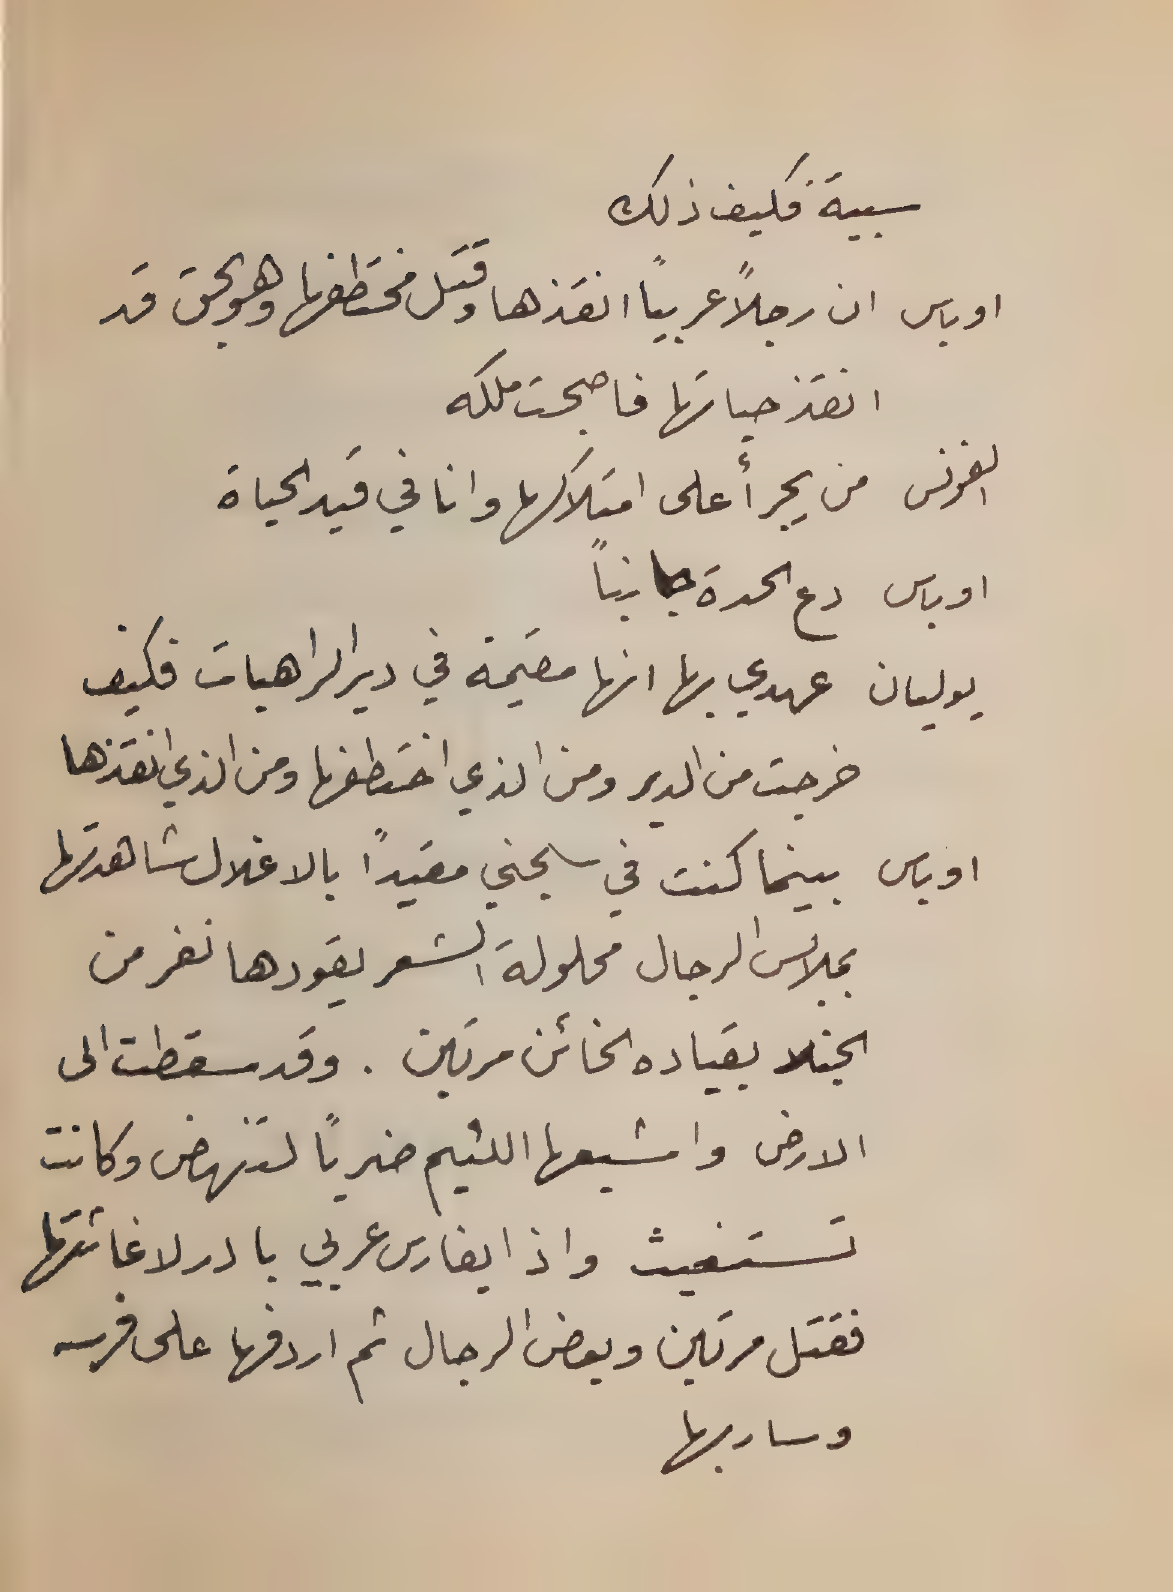 سبية فكيف ذلك
اوباس ان رجلاً عربياً انقذها وقتل مختطفها وهو بحق قد
انقذ حياتها فاصبحت ملكه
الفونس من يجرأ على امتلاكها وانا في قيد الحياة
اوباس دع الحدة جانباً
يوليان عهدي بها انها مقيمة في دير الراهبات فكيف
خرجت من الدير ومن الذي اختطفها ومن الذي انقذها
اوباس بينما كنت في سجني مقيداً بالاغلال شاهدتها
بملابس الرجال محلولة الشعر يقودها نفر من
الجند بقياده الخائن مرتين . وقد سقطت الى
الارض واشبعها اللئيم ضرباً لتنهض وكانت
تستغيث واذا بفارس عربي بادر لاغاثتها
فقتل مرتين وبعض الرجال ثم اردفها على فرسه
وسار بها